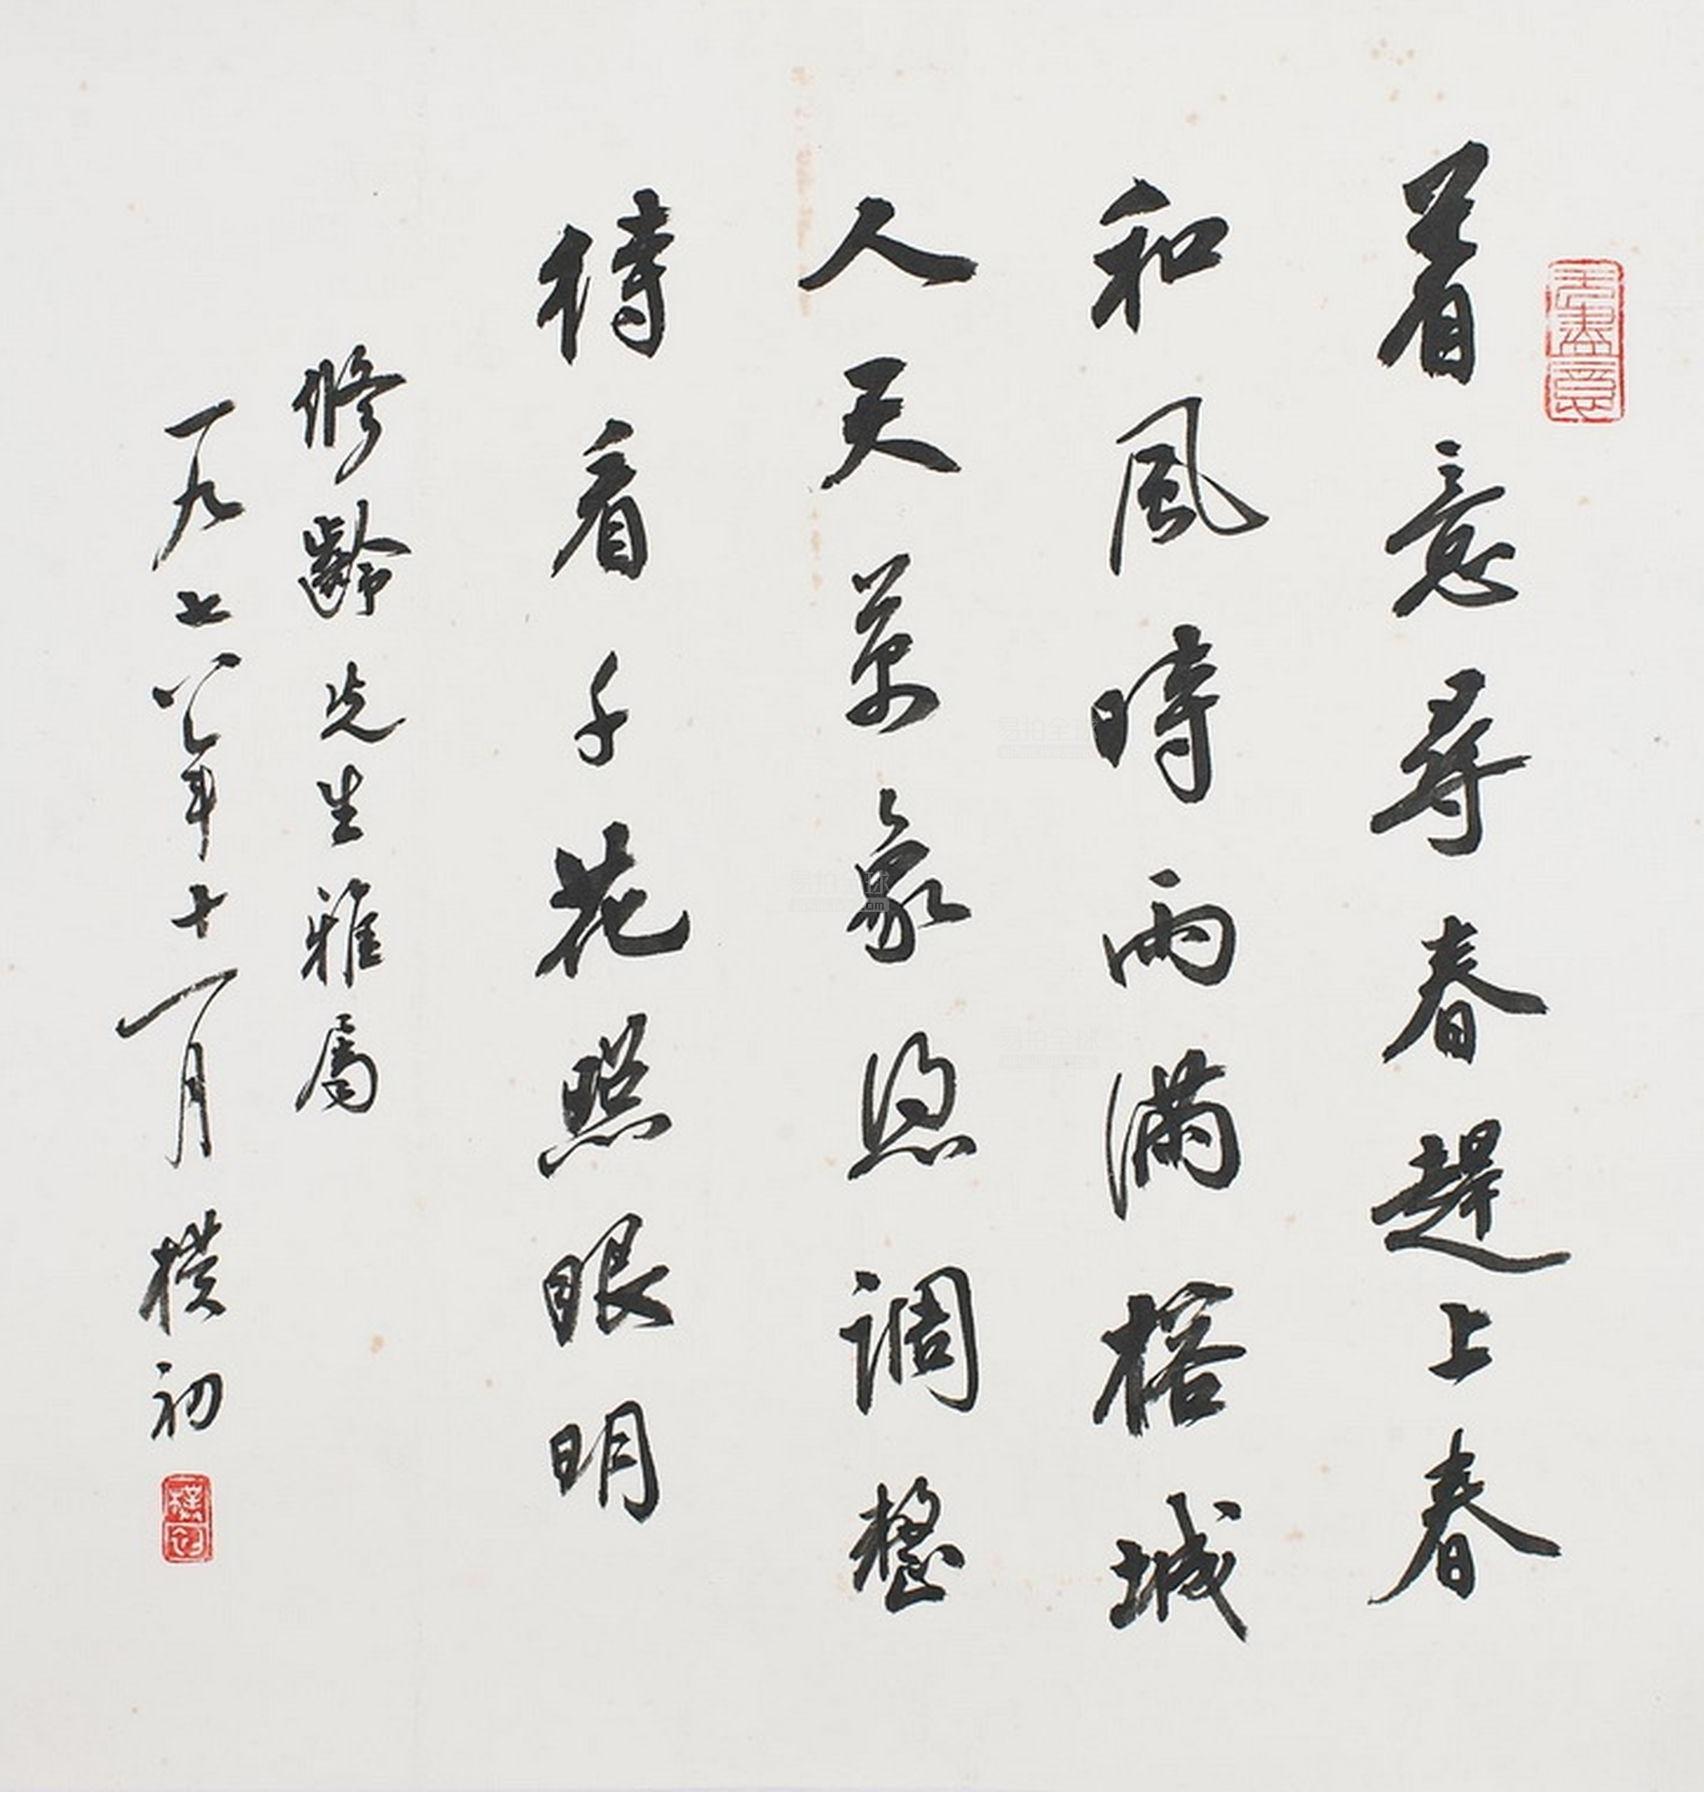 着意尋春趕上春
和風時雨滿榕城
人天萬象須調整
待看千花照眼明
修齡先生雅屬
一九七八年十一月 樸初
無盡意
樸初